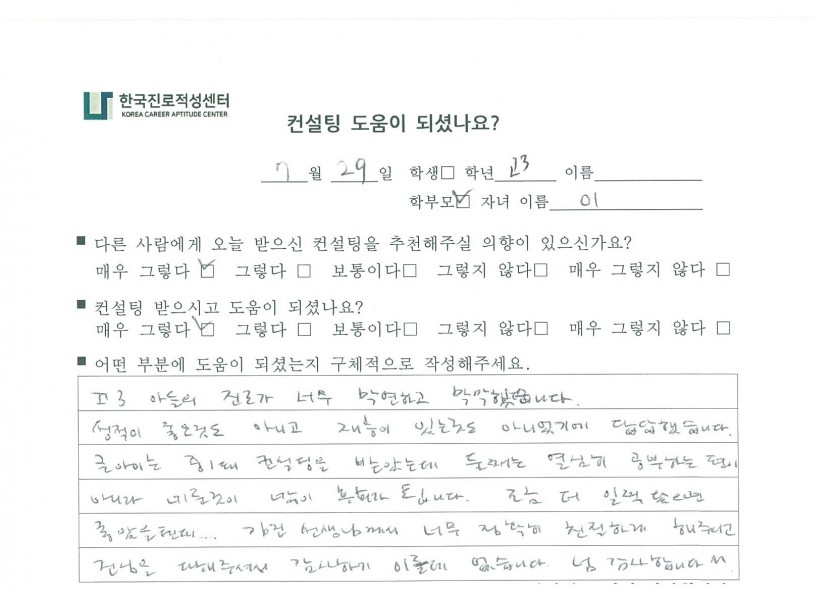 한국진로적성센터
KOREA CAREER APTITUDE CENTER
컨설팅 도움이 되셨나요?
7 월 29 일 학생□ 학년 고3 이름
학부모☑ 자녀 이름 이
■ 다른 사람에게 오늘 받으신 컨설팅을 추천해주실 의향이 있으신가요?
매우 그렇다 ☑ 그렇다 □ 보통이다□ 그렇지 않다□ 매우 그렇지 않다 □
■ 컨설팅 받으시고 도움이 되셨나요?
매우 그렇다☑ 그렇다 □ 보통이다□ 그렇지 않다□ 매우 그렇지 않다 □
■ 어떤 부분에 도움이 되셨는지 구체적으로 작성해주세요.
고3 아들의 진로가 너무 막연하고 막막했습니다.
성적이 좋은것도 아니고 재능이 있는것도 아니었기에 답답했습니다.
큰아이는 중1때 컨설팅을 받았는데 둘째는 열심히 공부하는 편이
아니라 미룬것이 너무 후회가 됩니다. 조금 더 일찍 왔으면
좋았을텐데... 선생님께서 너무 정확히 친절하게 해주시고
최선을 다해주셔서 감사하기 이를데 없습니다. 넘 감사합니다